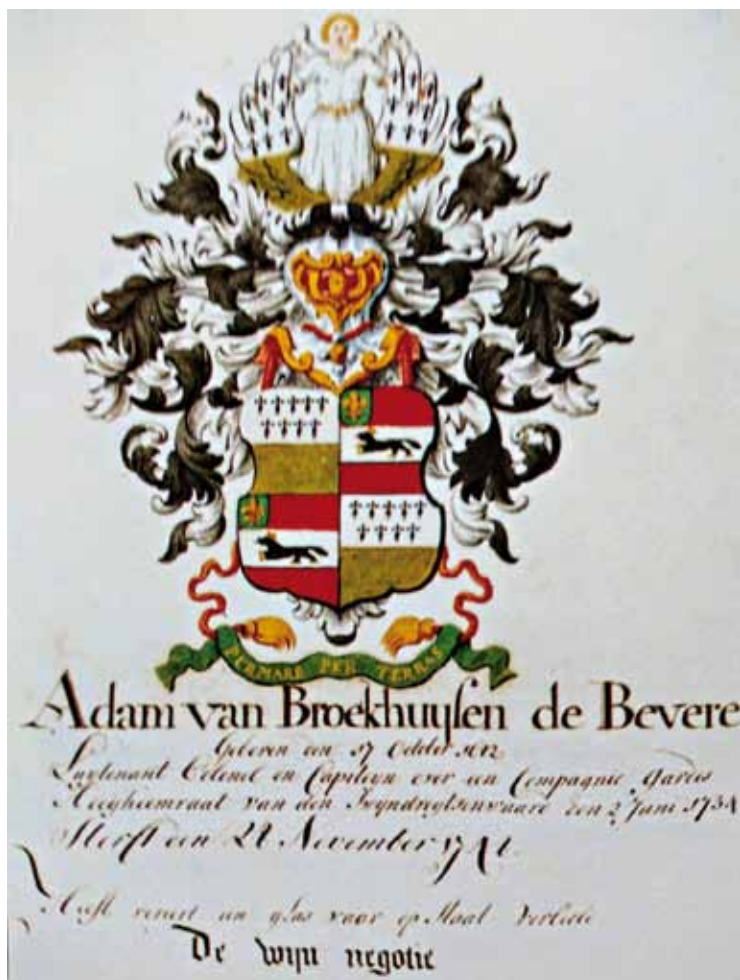 PERMARE PER TERRAS
Adam van Broekhuysen de Bevere
Geboren den 17 October
Luytenant Colonel en Capiteyn over een Compagnie Gardes
Heogheemraat van den Swyndregtsenwaard den 2 Juni 1734
Sterft den 21 November
Heeft vereert een glas voor op Staat
De wijn negotie